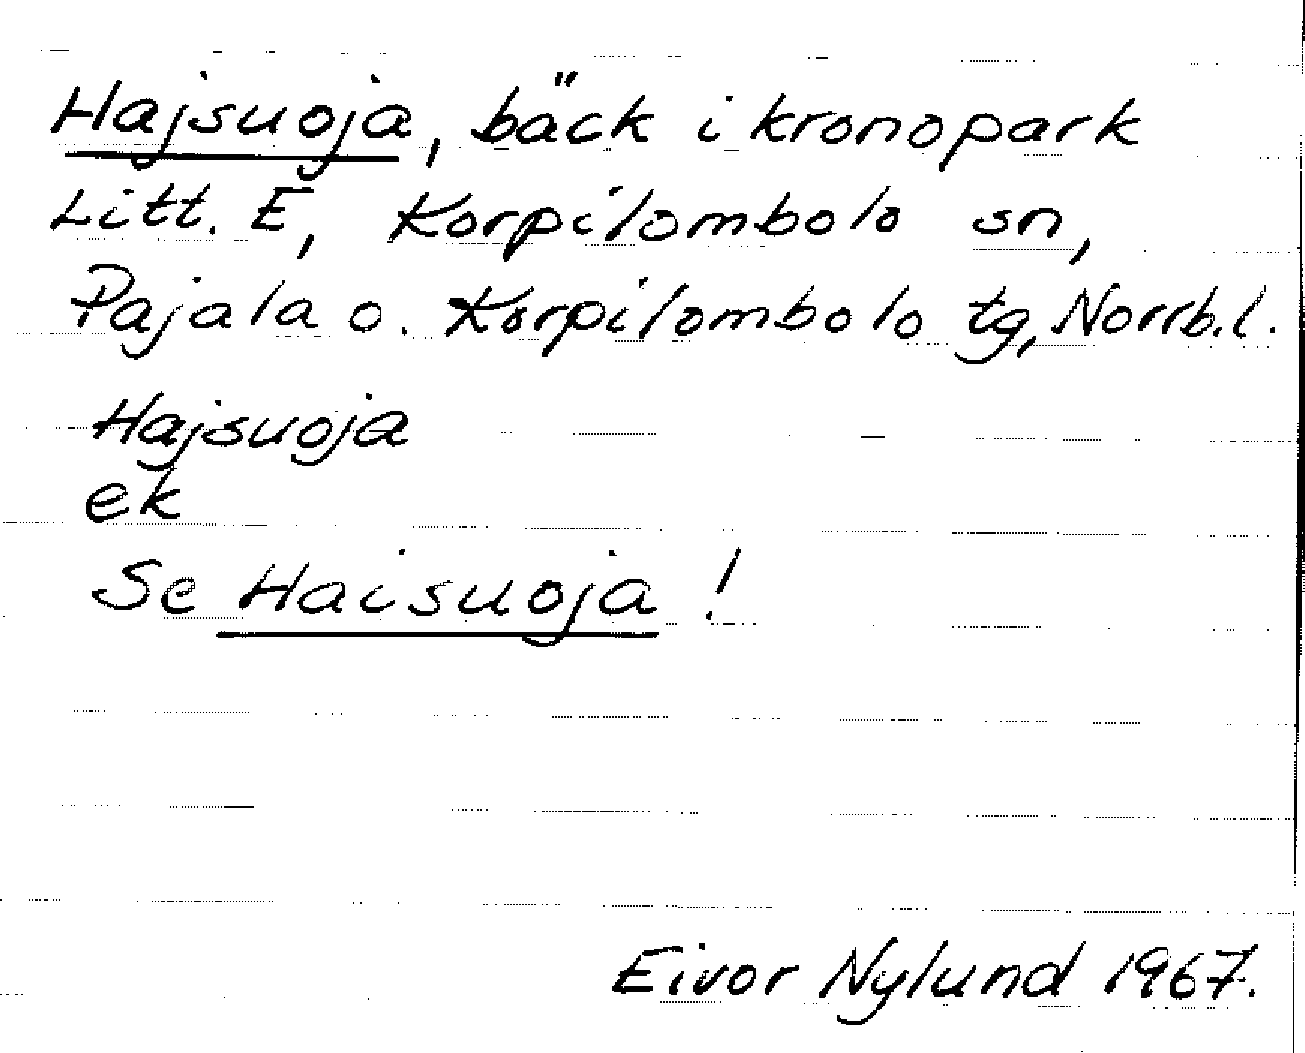 Hajsuoja, bäck i kronopark
Litt. E, Korpilombolo sn,
Pajala o. Korpilombolo tg, Norrb.l.
Hajsuoja
ek
Se Haisuoja !
Eivor Nylund 1967.